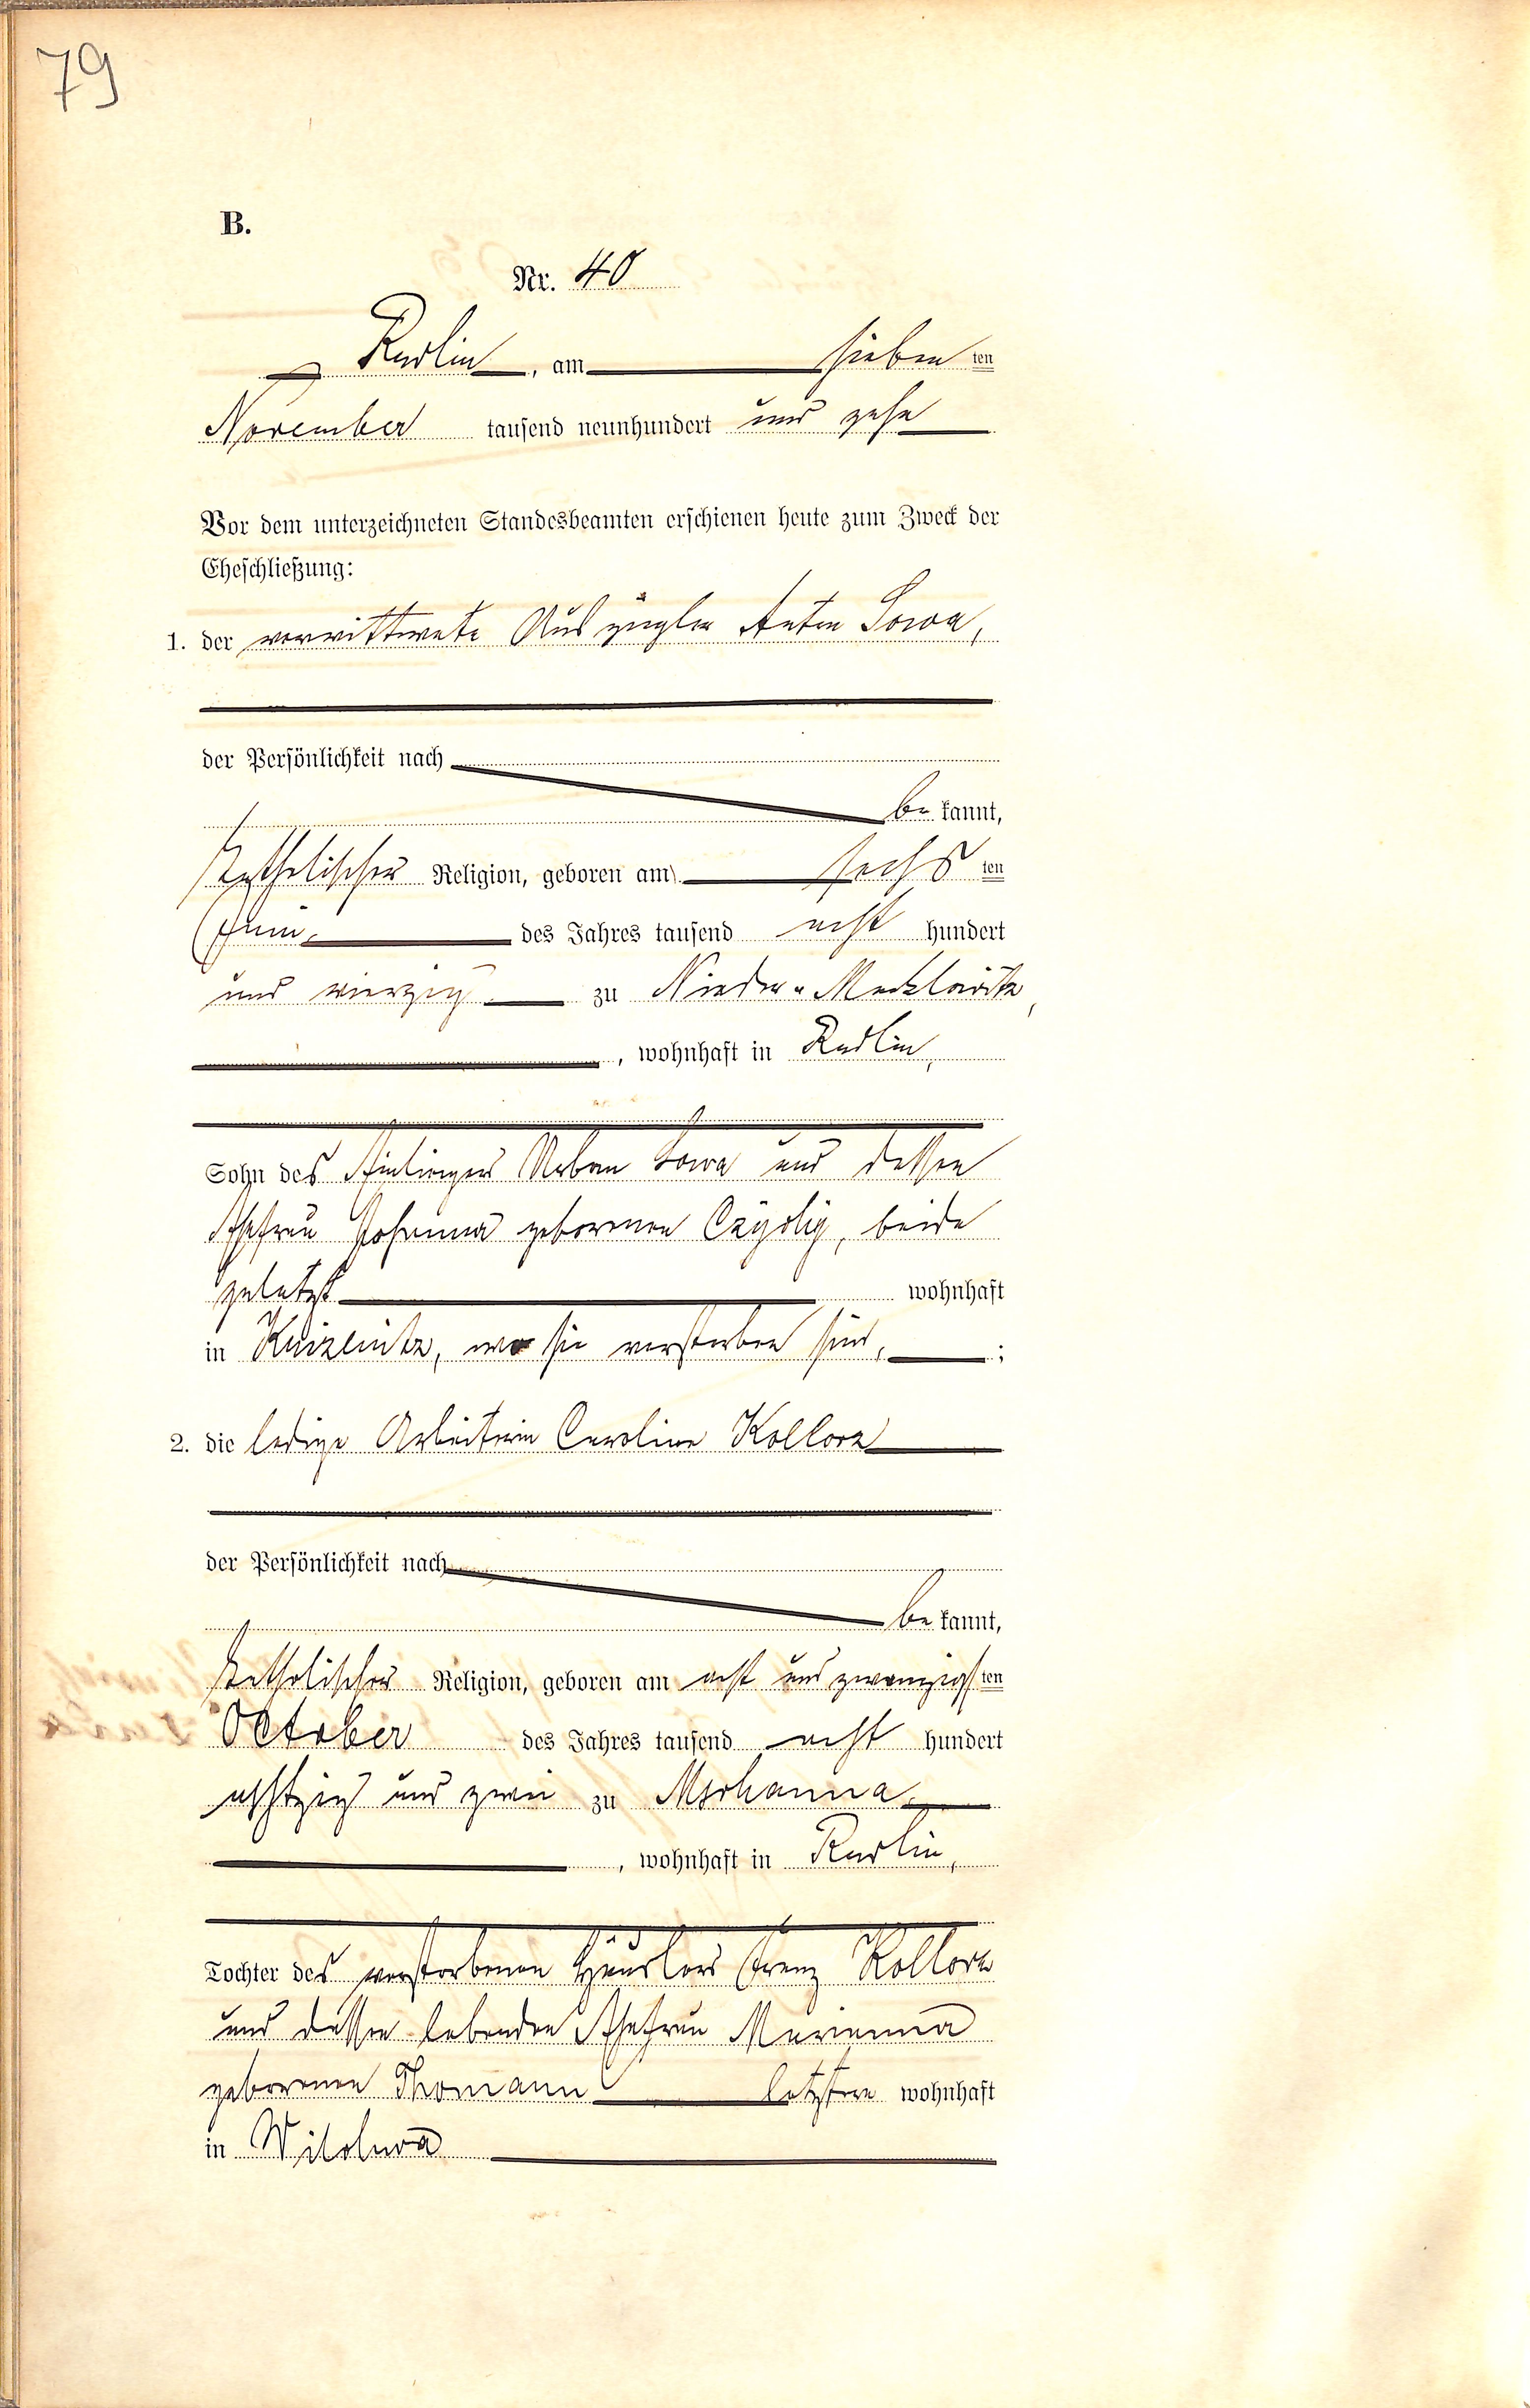 79
B.
Nr. 40
Radlin, am sieben ten
November tausend neunhundert und zehn
Vor dem unterzeichneten Standesbeamten erschienen heute zum Zweck der
Eheschließung:
1. der verwittwete Auszügler Anton Sowa,
der Persönlichkeit nach
be kannt,
katholischer Religion, geboren am sechs ten
Juni des Jahres tausend acht hundert
und vierzig zu Nieder-Marklowitz,
, wohnhaft in Radlin,
Sohn des Urban Sowa und dessen
Ehefrau Johanna geborenen, beide
zuletzt wohnhaft
in, wo sie verstorben sind, ;
2. die ledige Arbeiterin Caroline Kollorz
der Persönlichkeit nach
be kannt,
katholischer Religion, geboren am acht und zwanzigsten
October des Jahres tausend acht hundert
achtzig und zwei zu Mschanna,
, wohnhaft in Radlin,
Tochter des verstorbenen Häuslers Franz Kollorz
und dessen lebenden Ehefrau Marianna
geborenen Thomann letztere wohnhaft
in Wilchwa